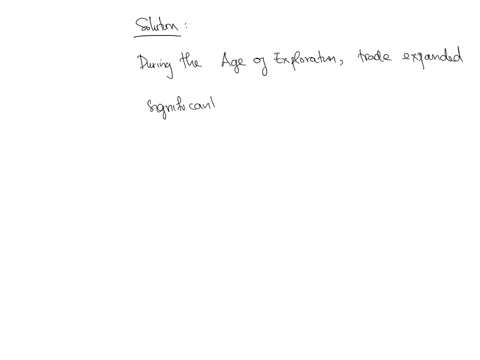 Solution :
During the Age of Exploration, trade expanded
significantl